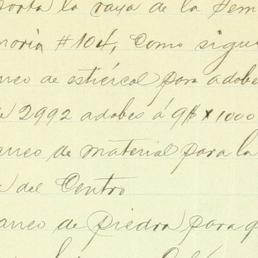 porta la raya de la Sem
moria #104, como sigue
aneo de estiércol para adobe
e 2992 adobes á 9$ x 1000
aneo de material para la
del Centro
aneo de Piedra para